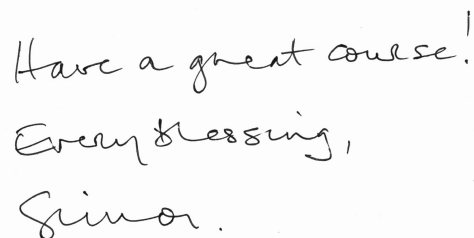 Have a great course!
Every blessing,
Simon.